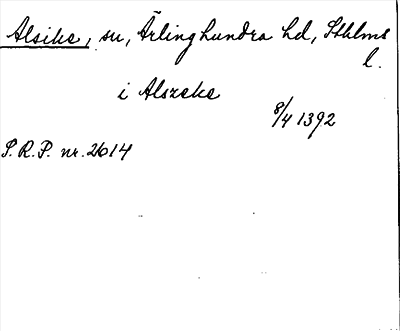 Alsike, sn, Ärlinghundra hd, Sthlms
l.
i Alszeke
8/4 1392
S.R.P. nr. 2614